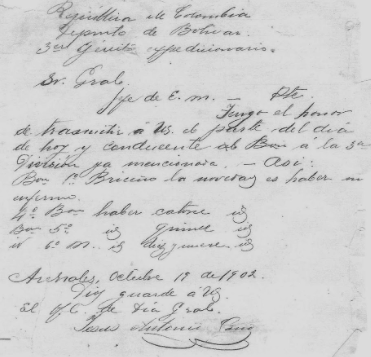 Republica de Colombia
Ejercito de Bolivar
3er Ejercito expedicionario.
Sr. Gral.
Jefe de E. M. — Pte
Tengo el honor
de trasmitir á US. el parte del día
de hoy y conducente al Bon á la 3a
División ya mencionada. — Así:
Bon 1o Briceño la novedad es haber un
enfermo.
4o Bon haber catorce id
Bon 5o id quince id
id 6o M. id diez y nueve id
Octubre 19 de 1902.
Dios guarde á US.
El Jf. de Día Gral.
Antonio